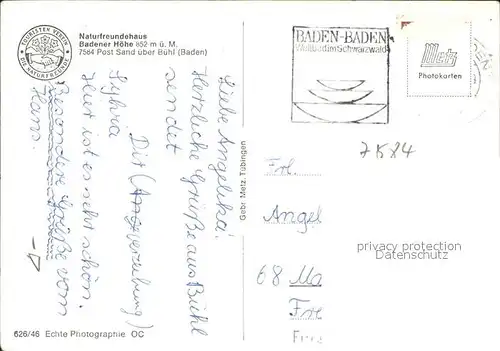 TOURISTEN VEREIN
DIE NATURFREUNDE
Naturfreundehaus
Badener Höhe 852 m ü. M.
7564 Post Sand über Bühl (Baden)
Liebe Angelika!
Herzliche Grüße aus Bühl
sendet Dir (
verzeihung)
Sylvia
Hier ist es sehr schön.
Besondere Grüße vom
Hans.
626/46 Echte Photographie OC
Gebr. Metz, Tübingen
BADEN-BADEN
Weltbad im Schwarzwald
Metz
Photokarten
7584
Frl.
Angel
68 Ma
privacy protection
oldthing.com